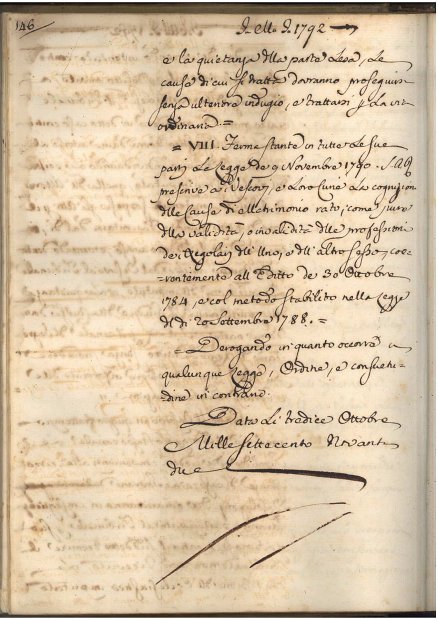 146
J. M. J. 1792
e la quietanza dlla parte Lesa, Le
cause di cui si tratta dovranno proseguirsi
senza ulteriore indugio, e trattarsi p. La via
ordinaria =
= VIII. Ferme stante in tutte Le sue
parti La Legge de 9 Novembre 1790. S. A. R.
preserva a' Vescovi, e Loro Curie La cognizione
dlle Cause di Matrimonio rato, come pure
dlla validità, o invalidità dlle professioni
de Regolari dll' Uno, e dll' altro Sesso, coe-
rentemente all' Editto de 30 Ottobre
1784, e col metodo stabilito nella Legge
del dì 20 Settembre 1788. =
= Derogando in quanto occorra a
qualunque Legge, Ordine, e consuetu-
dine in contrario.
Data Li tredici Ottobre
Mille settecento Novanta
due